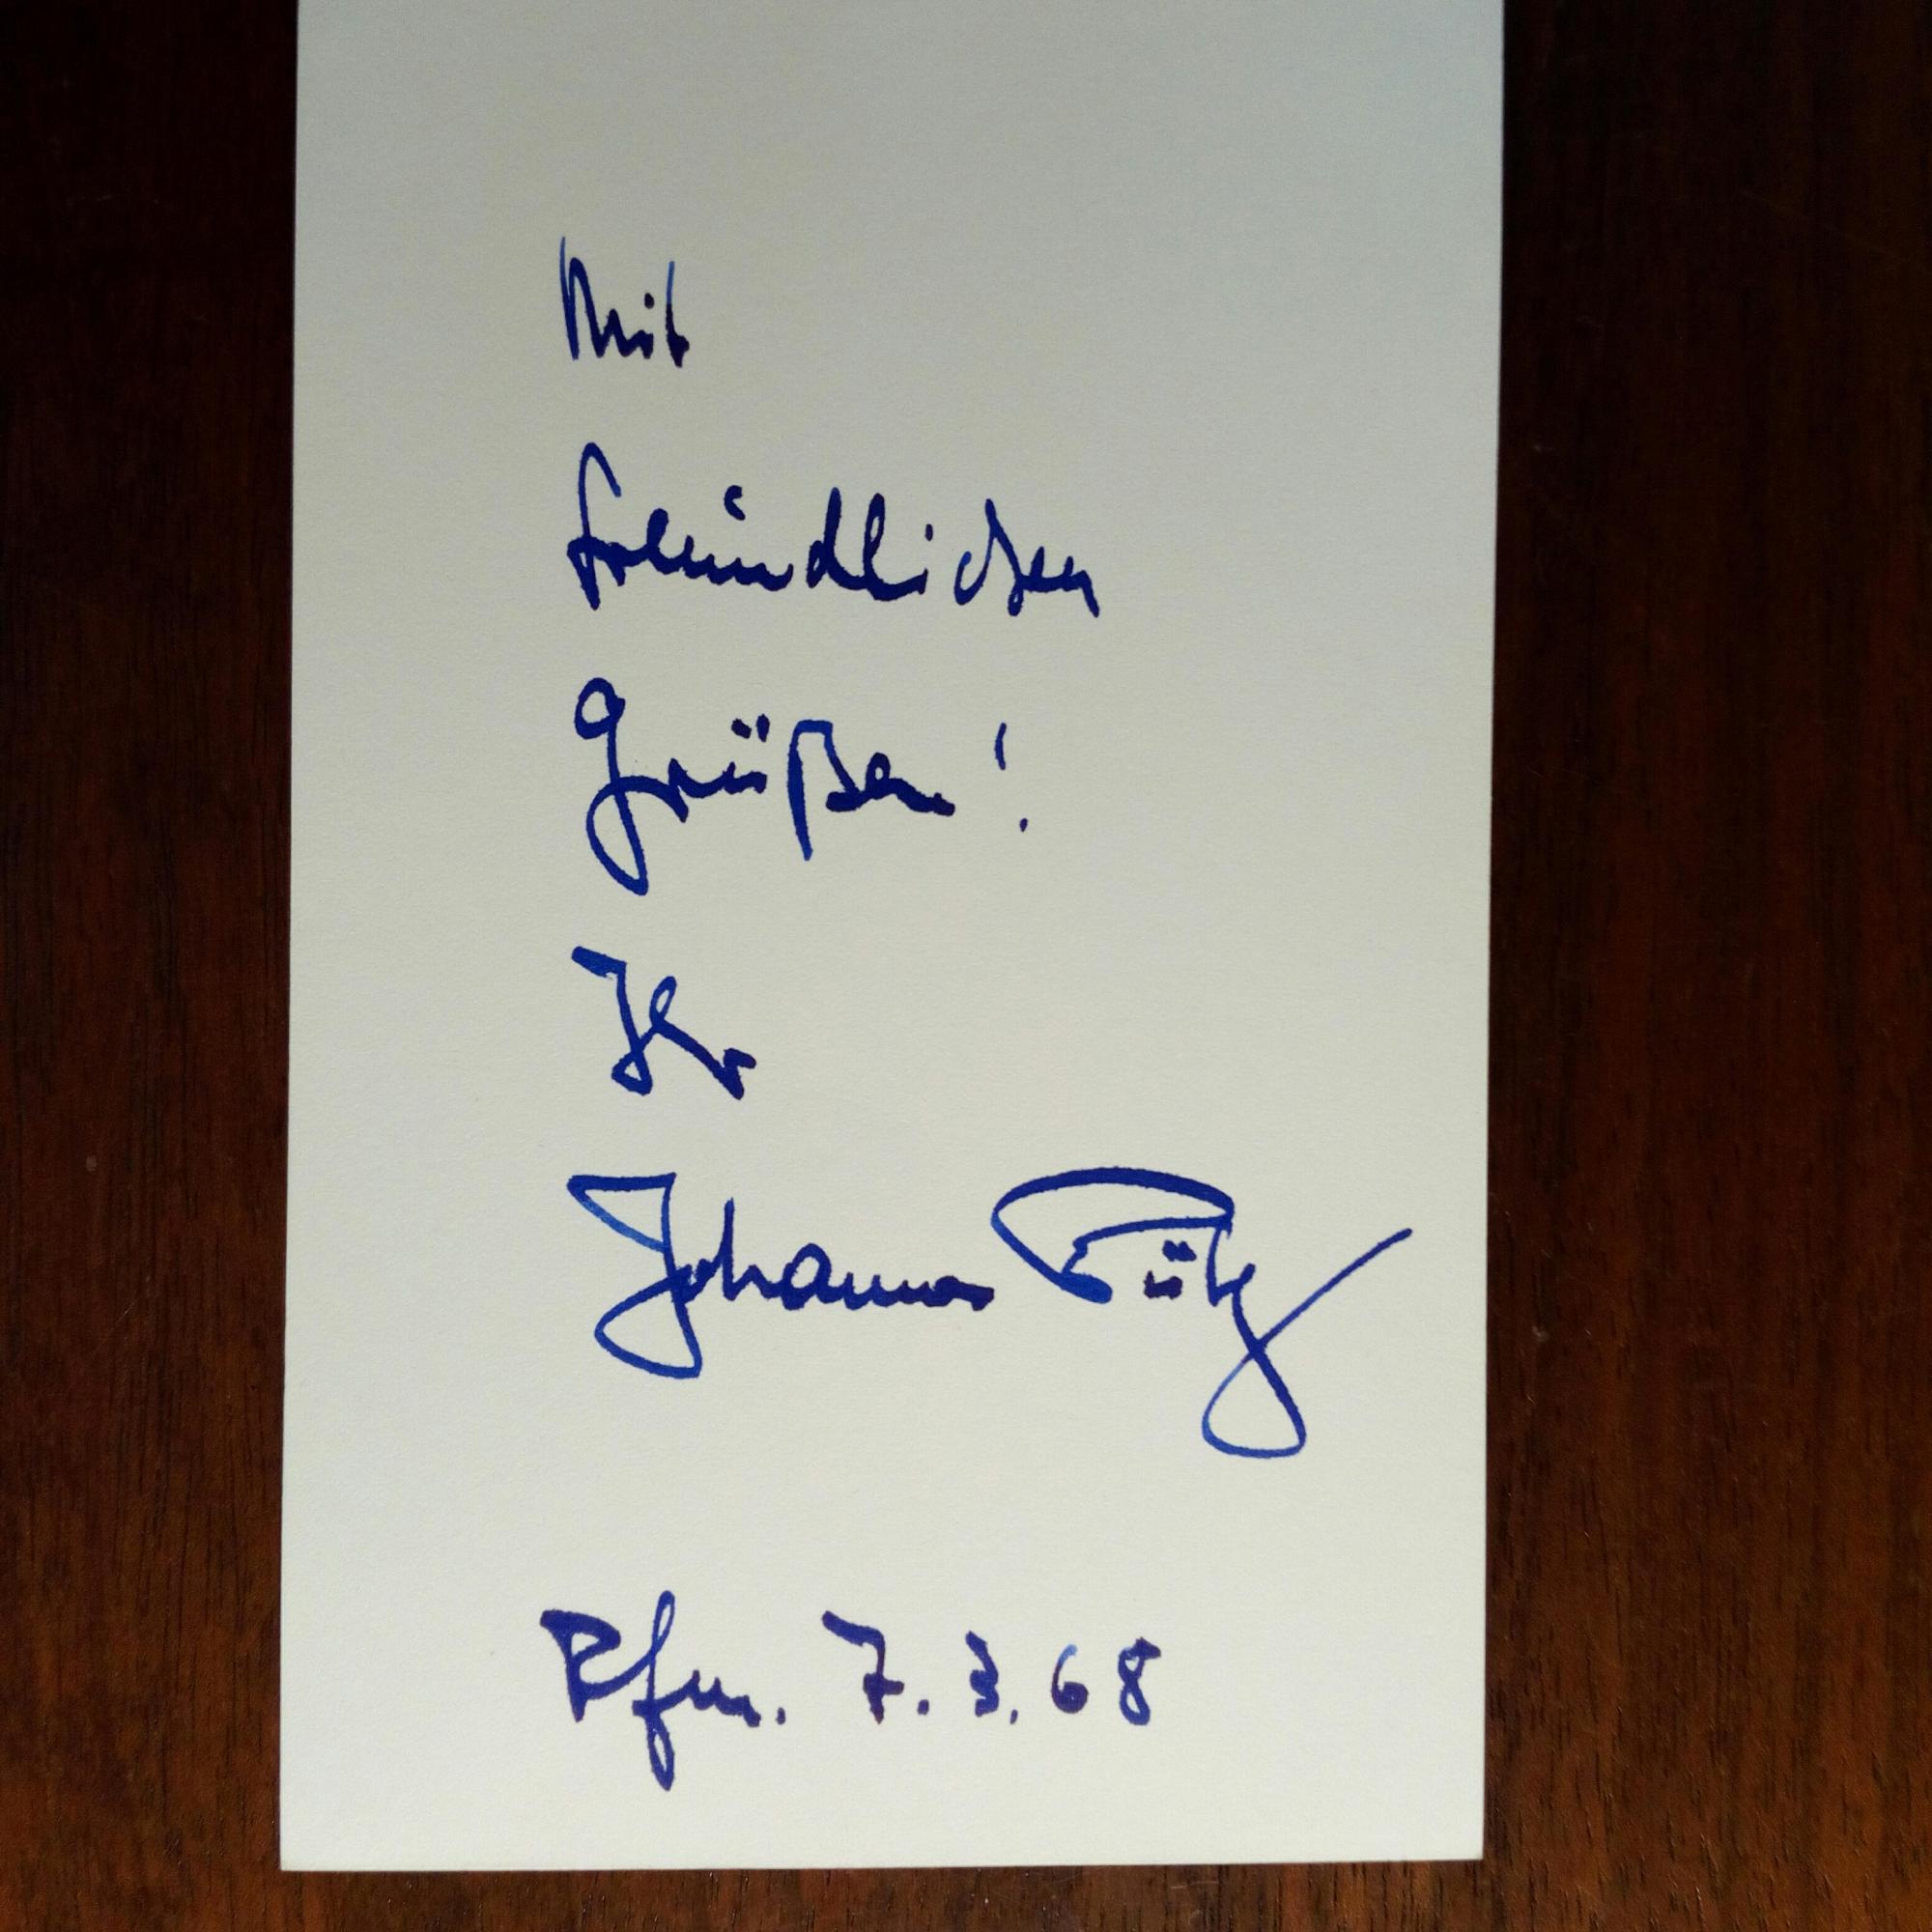 Mit
freundlichen
Grüßen!
Ihr
Johannes Pütz
Rfm. 7.3.68